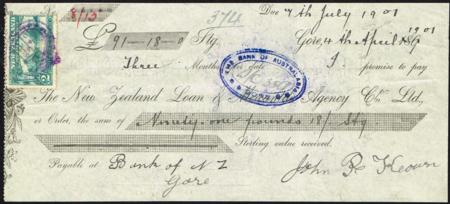 8/15 374 Due 7th July 1901
£ 91-18-0 Stg Gore, 4th April 1901
Three Months after date I promise to pay
THE BANK OF AUSTRALASIA
The New Zealand Loan & Mercantile Agency Co. Ltd.
or Order, the sum of Ninety-one pounds 18/- Stg
Sterling value received.
Payable at Bank of N Z
Gore John